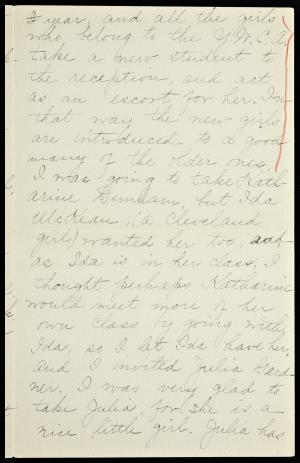 year, and all the girls
who belong to the Y.W.C.A.
take a new student to
the reception, and act
as an escort for her. In
that way the new girls
are introduced to a good
many of the older ones.
I was going to take Kath-
arine Dunham, but Ida
McKean, (a Cleveland
girl) wanted her too, and,
as Ida is in her class, I
thought perhaps Katharine
would meet more of her
own class by going with
Ida, so I let Ida have her,
and I invited Julia Gard-
ner. I was very glad to
take Julia, for she is a
nice little girl. Julia has